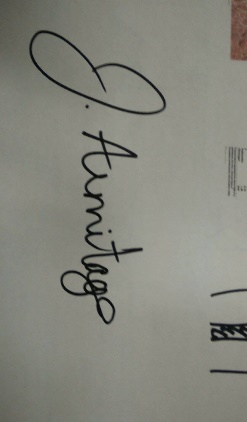 J. Armitage